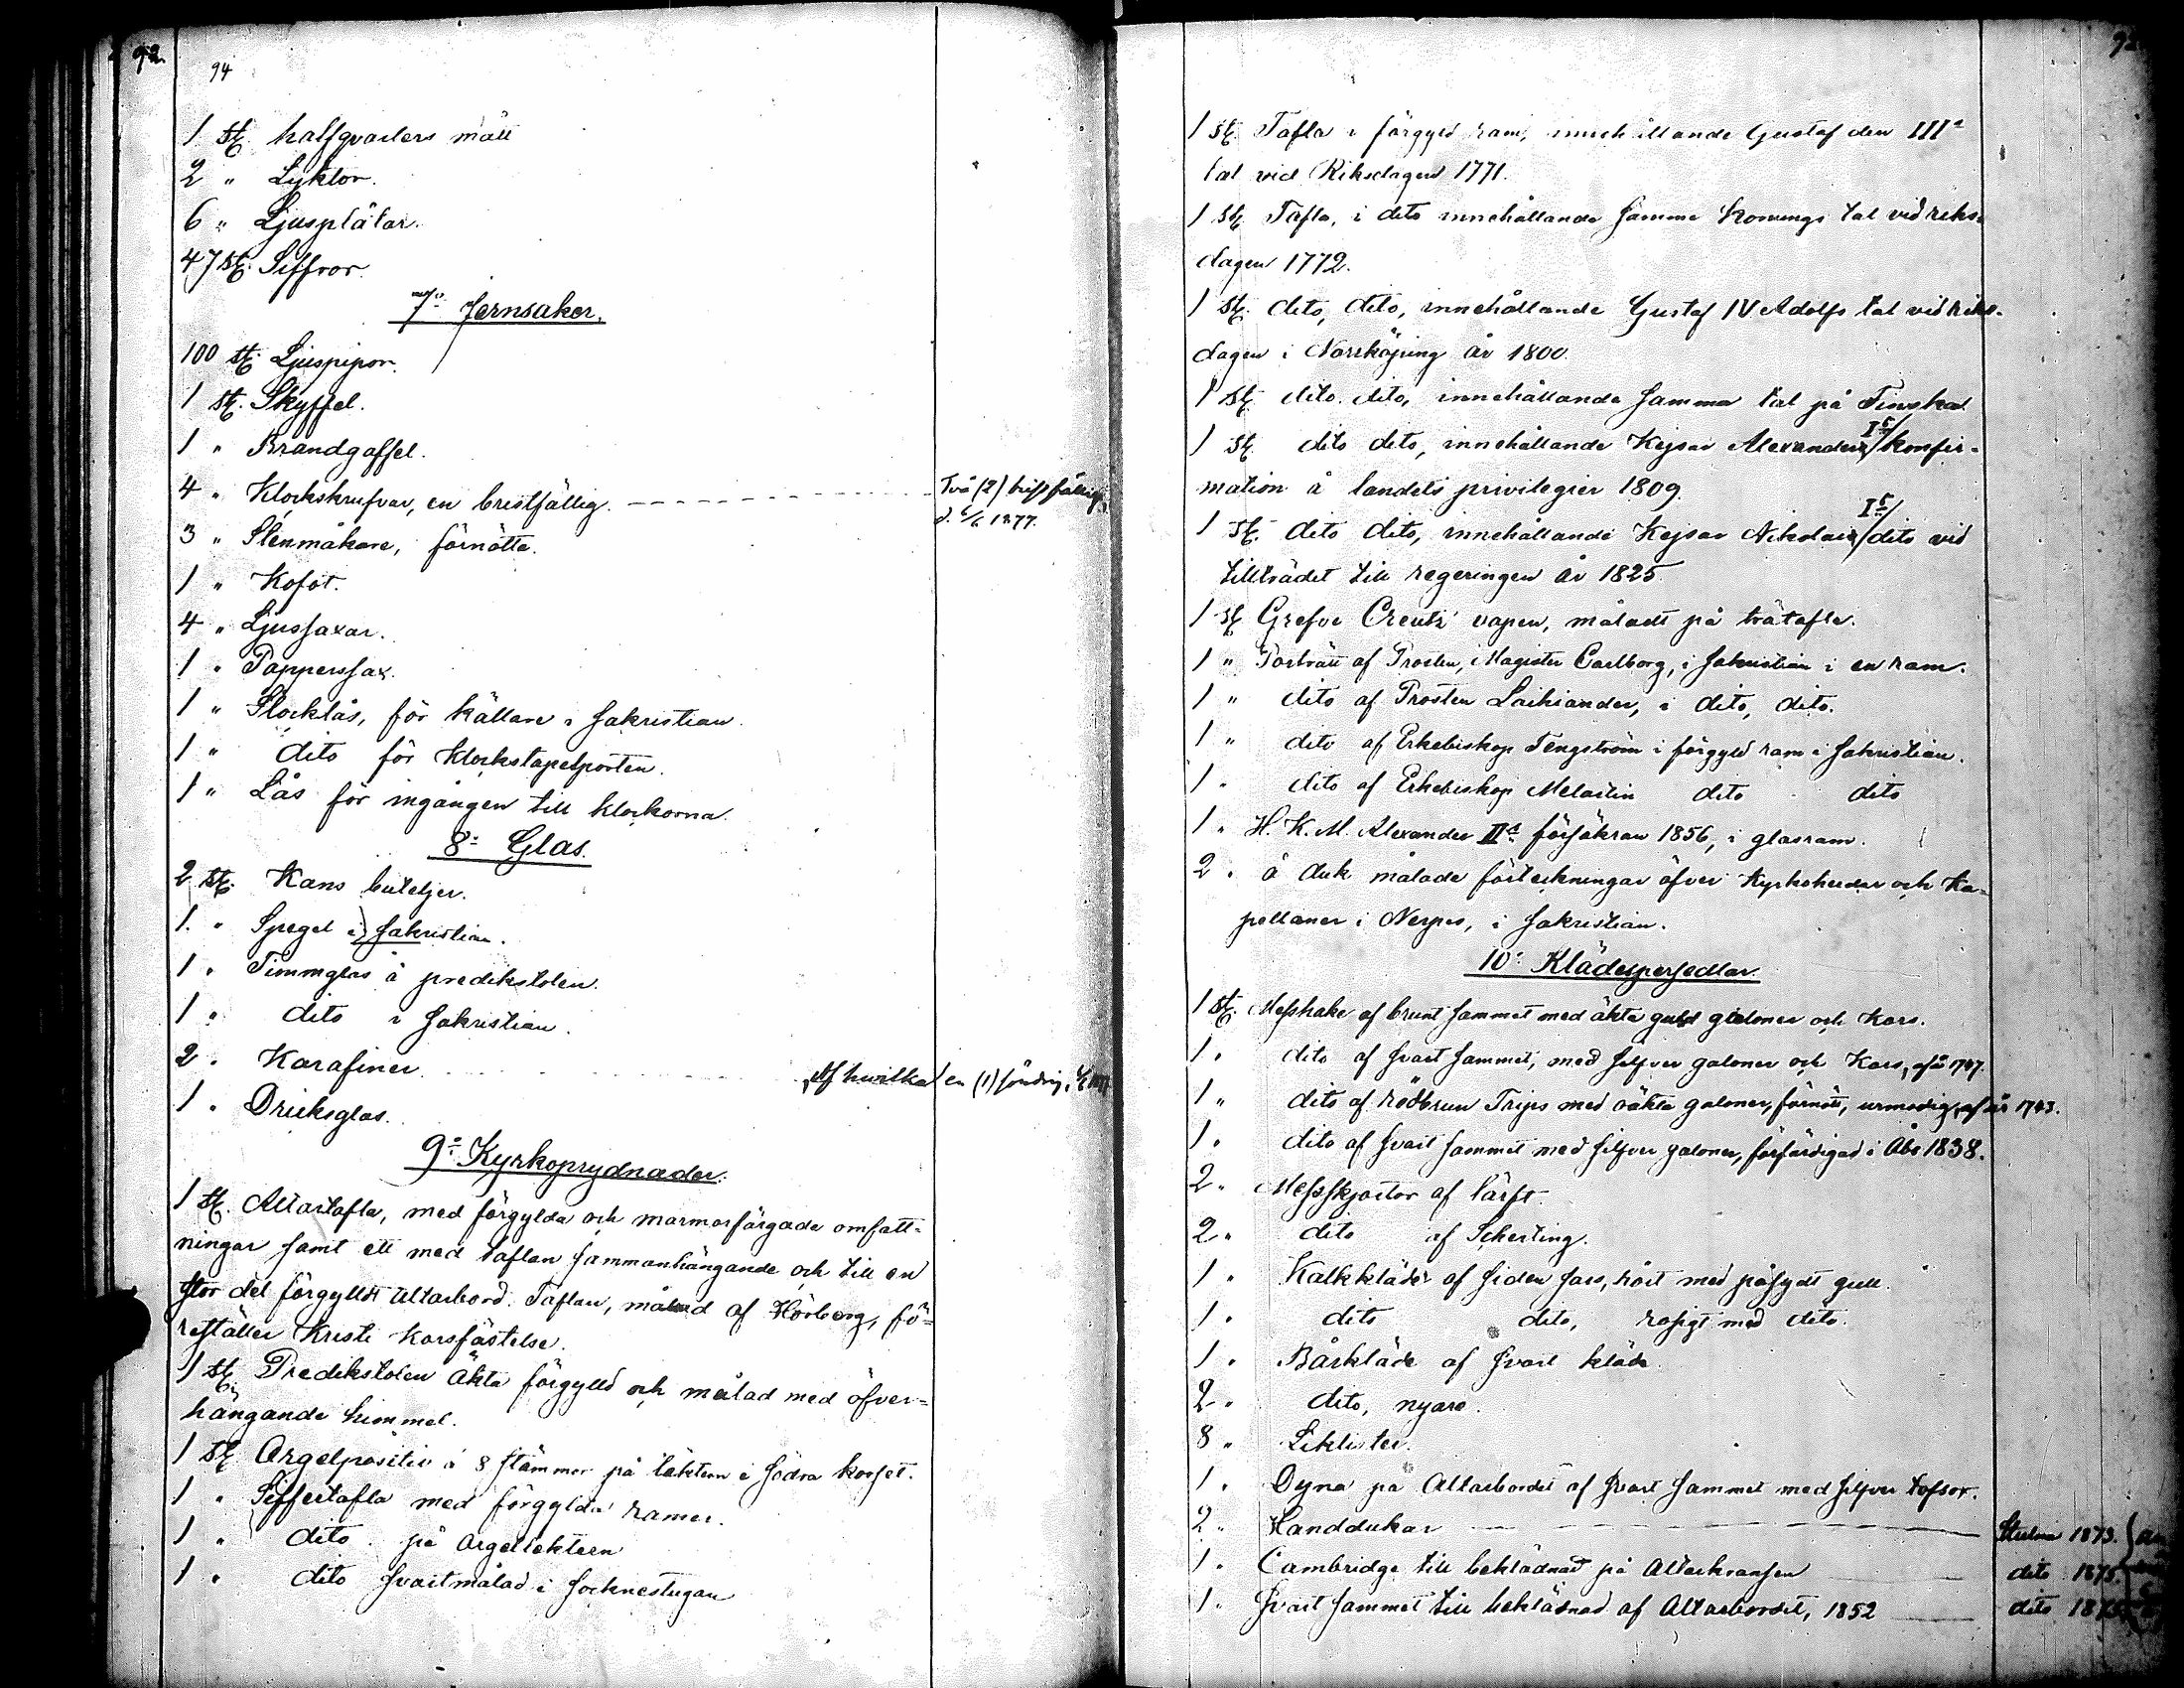 92.
94
1 st. halfqvarters mått
2 " Lyktor.
6 " Ljusplåtar.
47 st. Siffror.
7º Jernsaker.
100 st. Ljuspipor.
1 st. Skyffel.
1 " Brandgaffel.
4 " Klockskrufvar, en bristfällig. Två (2) bristfällig,
d. 6/6 1877.
3 " Stenmåkare, förnötta.
1 " Kofot.
4 " Ljussaxar.
1 " Papperssax.
1 " Stocklås, för källare i sakristian.
1 " dito för Klockstapelporten.
1 " Lås för ingången till klockorna.
8º Glas.
2 st. Kans buteljer.
1. " Spegel i sakristian.
1 " Timmglas å predikstolen.
1 " dito i sakristian.
2 " Karafiner. Af hwilka en (1) söndrig,
1 " Dricksglas.
9º Kyrkoprydnader.
1 st. Altartafla, med förgylda och marmorfärgade omfatt-
ningar samt ett med taflan sammanhängande och till en
stor del förgylldt altarbord. Taflan, målad af Hörberg, fö-
reställer Kristi korsfästelse.
1 st. Predikstolen äkta förgylld och målad med öfver-
hängande himmel.
1 st. Orgelpositiv à 8 stämmor på läktern i södra korset.
1 " Siffertafla med förgylda ramer.
1 " dito på orgelläktern
1 " dito svartmålad i socknestugan
1 st. Tafla i förgyld ram, innehållande Gustaf den III
tal vid Riksdagen 1771.
1 st. Tafla, i dito innehållande samme Konungs tal vid riks-
dagen 1772.
1 st. dito, dito, innehållande Gustaf IV Adolfs tal vid riks-
dagen i Norrköping år 1800.
1 st. dito. dito, innehållande samma tal på Finska
1 st. dito dito, innehållande Kejsar Alexanders I konfir-
mation å landets privilegier 1809.
1 st. dito dito, innehållande Kejsar Nikolais I dito vid
tillträdet till regeringen år 1825.
1 st Grefve Creutz' vapen, måladt på trätafla.
1 " Porträtt af Prosten, Magister Carlborg, i sakristian i en ram.
1 " dito af Prosten Laihiander, i dito, dito.
1 " dito af Erkebiskop Tengström i förgyld ram i sakristian.
1 " dito af Erkebiskop Melartin dito dito
1 " H. K. M. Alexander II försäkran 1856, i glasram.
2 " å duk målade förteckningar öfver Kyrkoherdar och Ka-
pellaner i Nerpes, i sakristian.
10º Klädespersedlar.
1 st. Messhake af brunt sammet med äkta guld galoner och Kors.
1 " dito af svart sammet, med silfver galoner och Kors, af år 1747.
1 " dito af rödbrun Trips med oäkta galoner, förnött, urmodig, af år 1743.
1 " dito af svart sammet med silfver galoner, förfärdigad i Åbo 1838.
2 " Messskjortor af lärft.
2 " dito af Scherting.
1 " Kalkkläde af siden sars, hvit med påsydt gull.
1 " dito dito, rosigt med dito.
1 " Bårkläde af svart kläde.
2 " dito, nyare.
8 " Liklister.
1 " Dyna på Altarbordet af svart sammet med silfver tofsor.
2 " Handdukar Stulna 1873.
1 " Cambridge till beklädnad på Altarkransen dito 1875.
1 " svart sammet till beklädnad af Altarbordet, 1852 dito